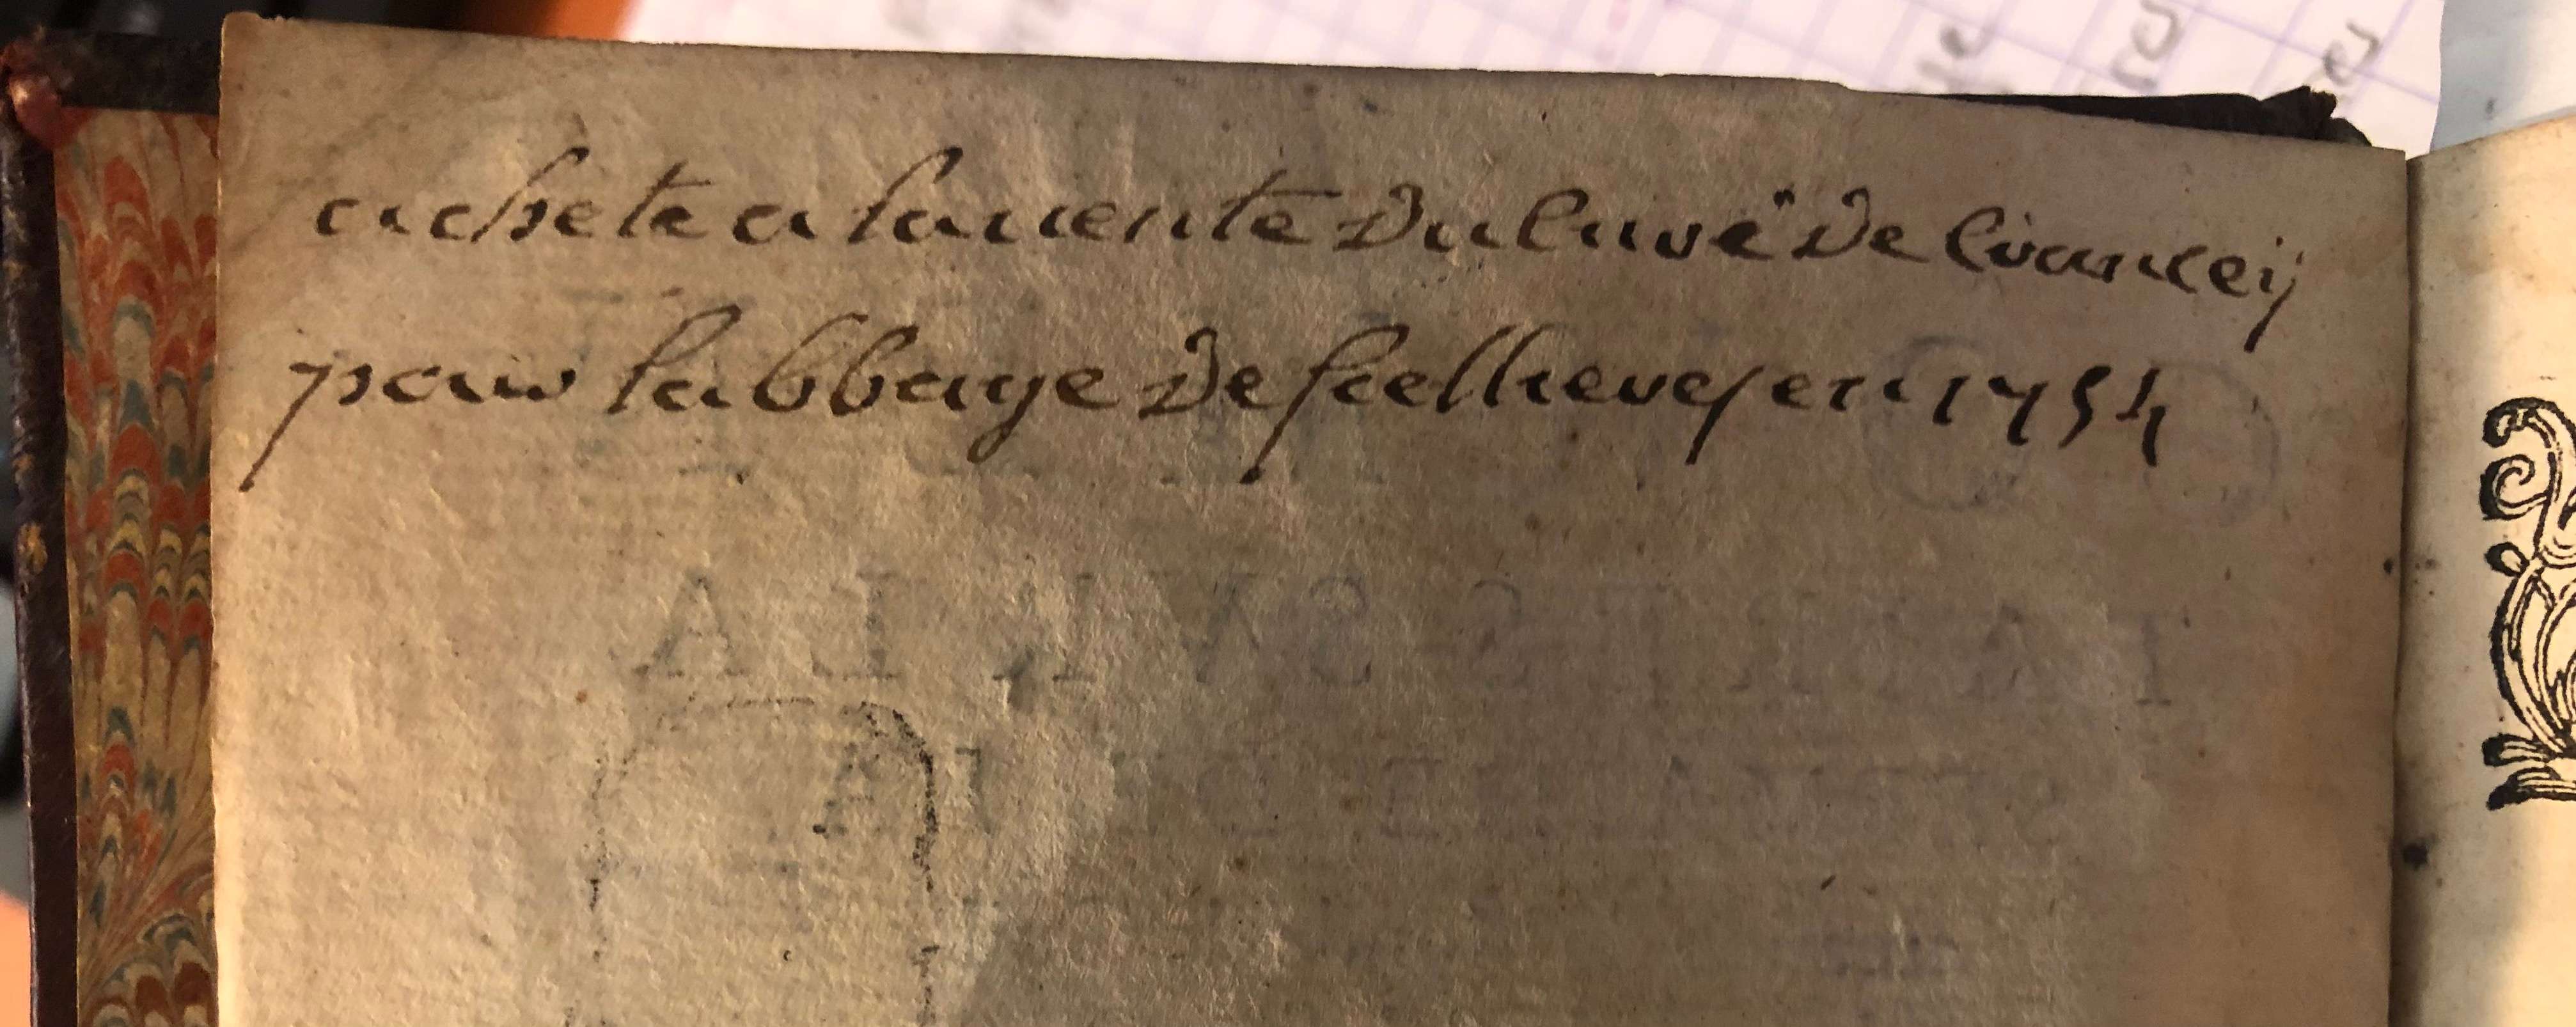 achete a la uente du curé de Crancey
pour labbaye de scellieres en 1754